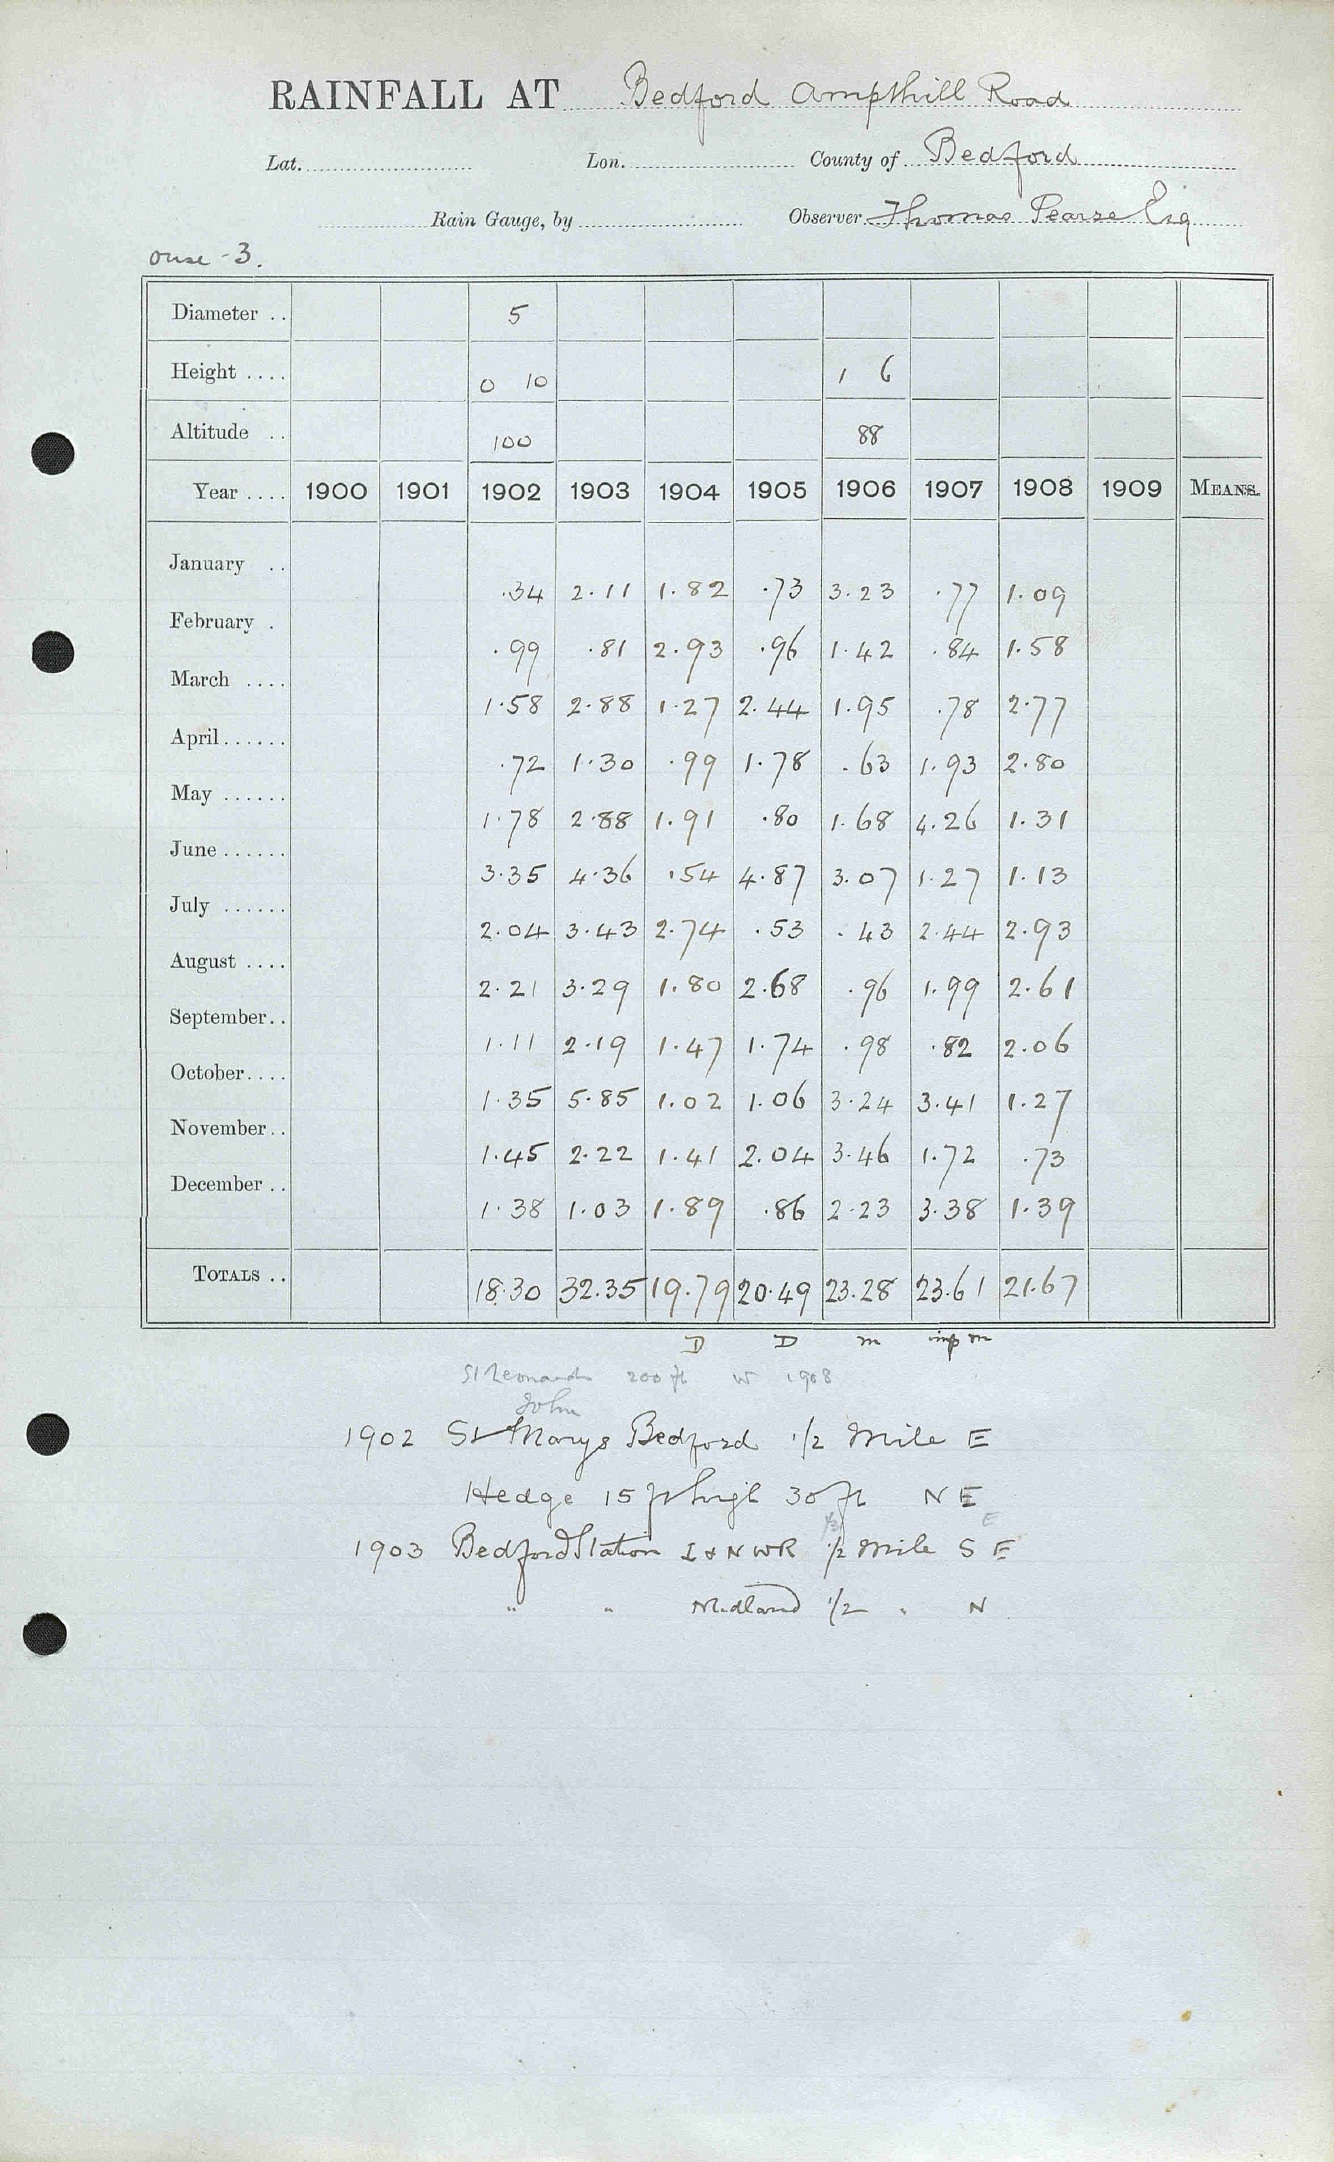 RAINFALL AT Bedford Ampthill Road
Lat. Lon. County of Bedford
Rain Gauge, by Observer Thomas Pearse Esq
Ouse - 3.
Diameter .. 5
Height .... 0 10 1 6
Altitude .. 100 88
Year .... 1900 1901 1902 1903 1904 1905 1906 1907 1908 1909 MEANS.
January .. .34 2.11 1.82 .73 3.23 .77 1.09
February . .99 .81 2.93 .96 1.42 .84 1.58
March .... 1.58 2.88 1.27 2.44 1.95 .78 2.77
April ...... .72 1.30 .99 1.78 .63 1.93 2.80
May ...... 1.78 2.88 1.91 .80 1.68 4.26 1.31
June ...... 3.35 4.36 .54 4.87 3.07 1.27 1.13
July ...... 2.04 3.43 2.74 .53 .43 2.44 2.93
August .... 2.21 3.29 1.80 2.68 .96 1.99 2.61
September.. 1.11 2.19 1.47 1.74 .98 .82 2.06
October.... 1.35 5.85 1.02 1.06 3.24 3.41 1.27
November.. 1.45 2.22 1.41 2.04 3.46 1.72 .73
December .. 1.38 1.03 1.89 .86 2.23 3.38 1.39
TOTALS .. 18.30 32.35 19.79 20.49 23.28 23.61 21.67
D D m imp m
St Leonards 200 ft W 1908
John
1902 St Marys Bedford 1/2 Mile E
Hedge 15 ft high 30 ft N E
1/3 E
1903 Bedford Station L & N W R 1/2 Mile S E
" " Midland 1/2 " N